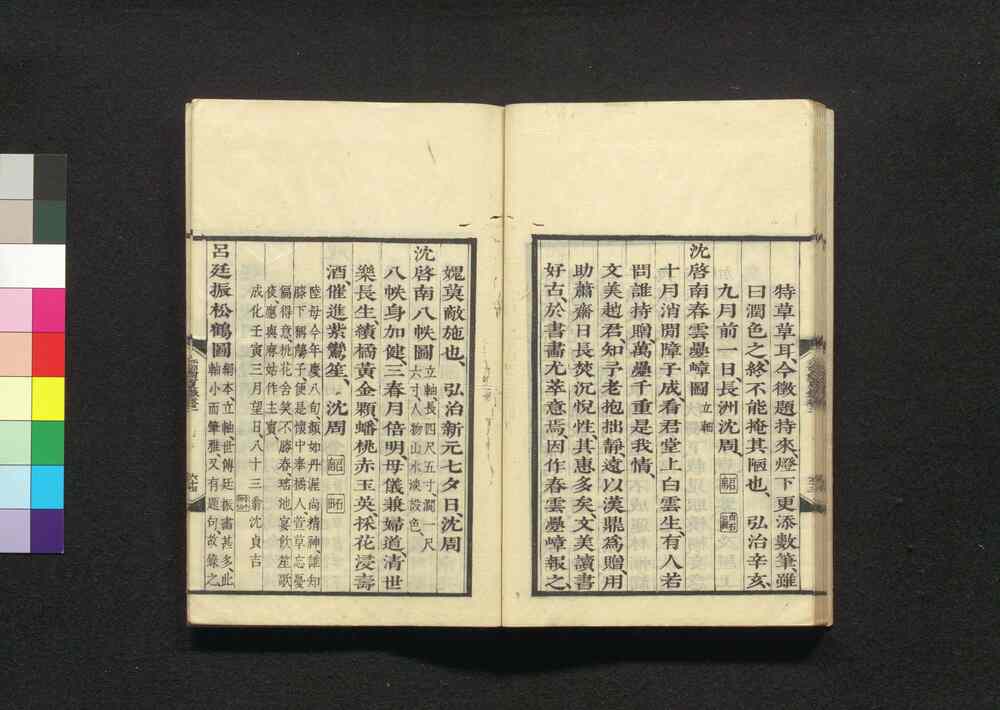 特草草耳、今徵題持來、燈下更添數筆、雖
曰潤色之、終不能掩其陋也、弘治辛亥、
九月前一日、長洲沈周、
沈啓南春雲疊嶂圖 立軸
十月消閒障子成看君堂上白雲生、有人若
問誰持贈、萬疊千重是我情、
文美趙君、知予老抱拙靜、遠以漢鼎爲贈、用
助蕭齋日長焚沉悅性、其惠多矣、文美讀書
好古、於書畫尤萃意焉、因作春雲疊嶂報之、
媿莫敵施也、弘治新元七夕日、沈周
沈啓南八帙圖 立軸、長四尺五寸、濶一尺
六寸、人物山水淡設色、
八帙身加健、三春月倍明、母儀兼婦道、清世
樂長生、績橘黃金顆、蟠桃赤玉英、採花浸壽
酒、催進紫鸞笙、沈周
陸母今年慶八旬、顏如丹渥尚精神、誰知
膝下稱觴子、便是懷中奉橘人、萱草忘憂
偏得意、桃花含笑不勝春、瑤池宴飲笙歌
後、應與麻姑作主賓、
成化壬寅三月望日、八十三翁沈貞吉
呂廷振松鶴圖 絹本、立軸、世傳廷振畵甚多、此
軸小而筆雅、又有題句、故錄之、